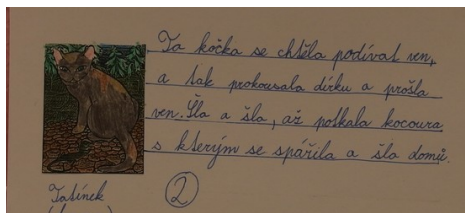 Ta kočka se chtěla podívat ven,
a tak prokousala dírku a prošla
ven. Šla a šla, až potkala kocoura
s kterým se spářila a šla domů.
Tatínek
2